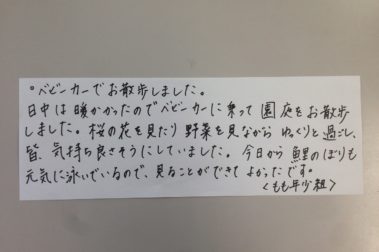 °ベビーカーでお散歩しました。
日中は暖かかったのでベビーカーに乗って園庭をお散歩
しました。桜の花を見たり野菜を見ながらゆっくりと過ごし、
皆、気持ち良さそうにしていました。今日から鯉のぼりも
元気に泳いでいるので、見ることができてよかったです。
〈もも年少組〉